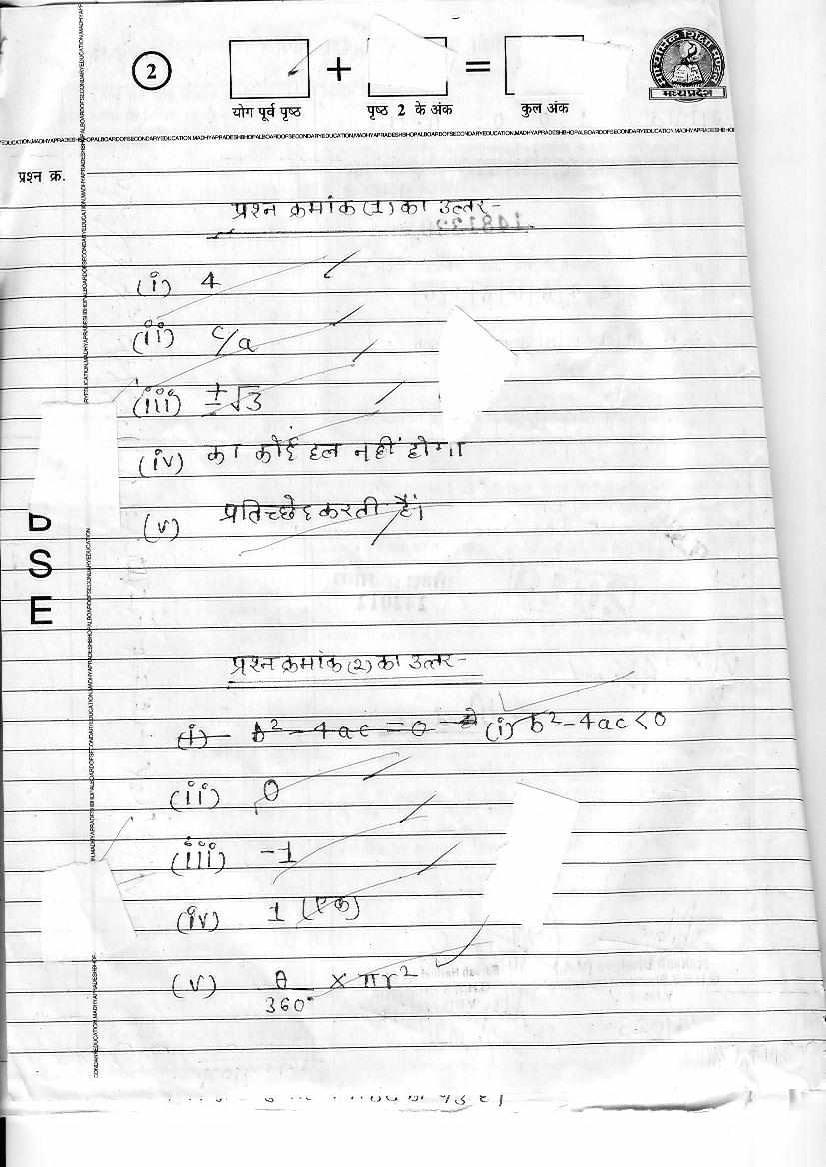 2
+
=
योग पूर्व पृष्ठ
पृष्ठ 2 के अंक
कुल अंक
माध्यमिक शिक्षा मण्डल
मध्यप्रदेश
प्रश्न क्र.
प्रश्न क्रमांक (1) का उत्तर-
(i) 4
(ii) c/a
(iii) ±√3
(iv) का कोई हल नहीं होगा
(v) प्रतिच्छेद करती हैं।
S
E
प्रश्न क्रमांक (2) का उत्तर-
(i) b²-4ac=0 (i) b²-4ac<0
(ii) 0
(iii) -1
(iv) 1 (एक)
(v) θ/360° × πr²